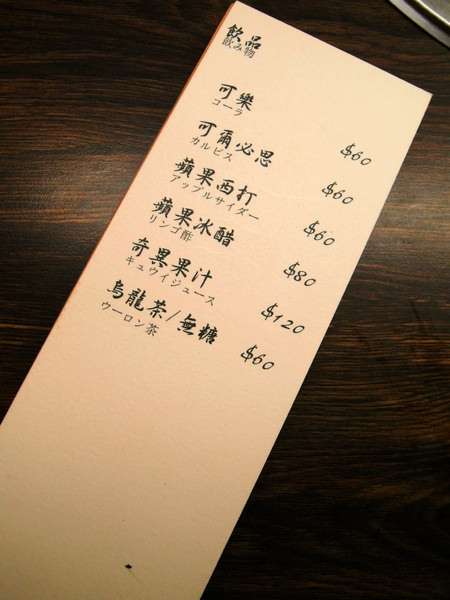 飲品
飲み物
可樂 $60
コーラ
可爾必思 $60
カルピス
蘋果西打 $60
アップルサイダー
蘋果冰醋 $80
リンゴ酢
奇異果汁 $120
キュウイジュース
烏龍茶/無糖 $60
ウーロン茶